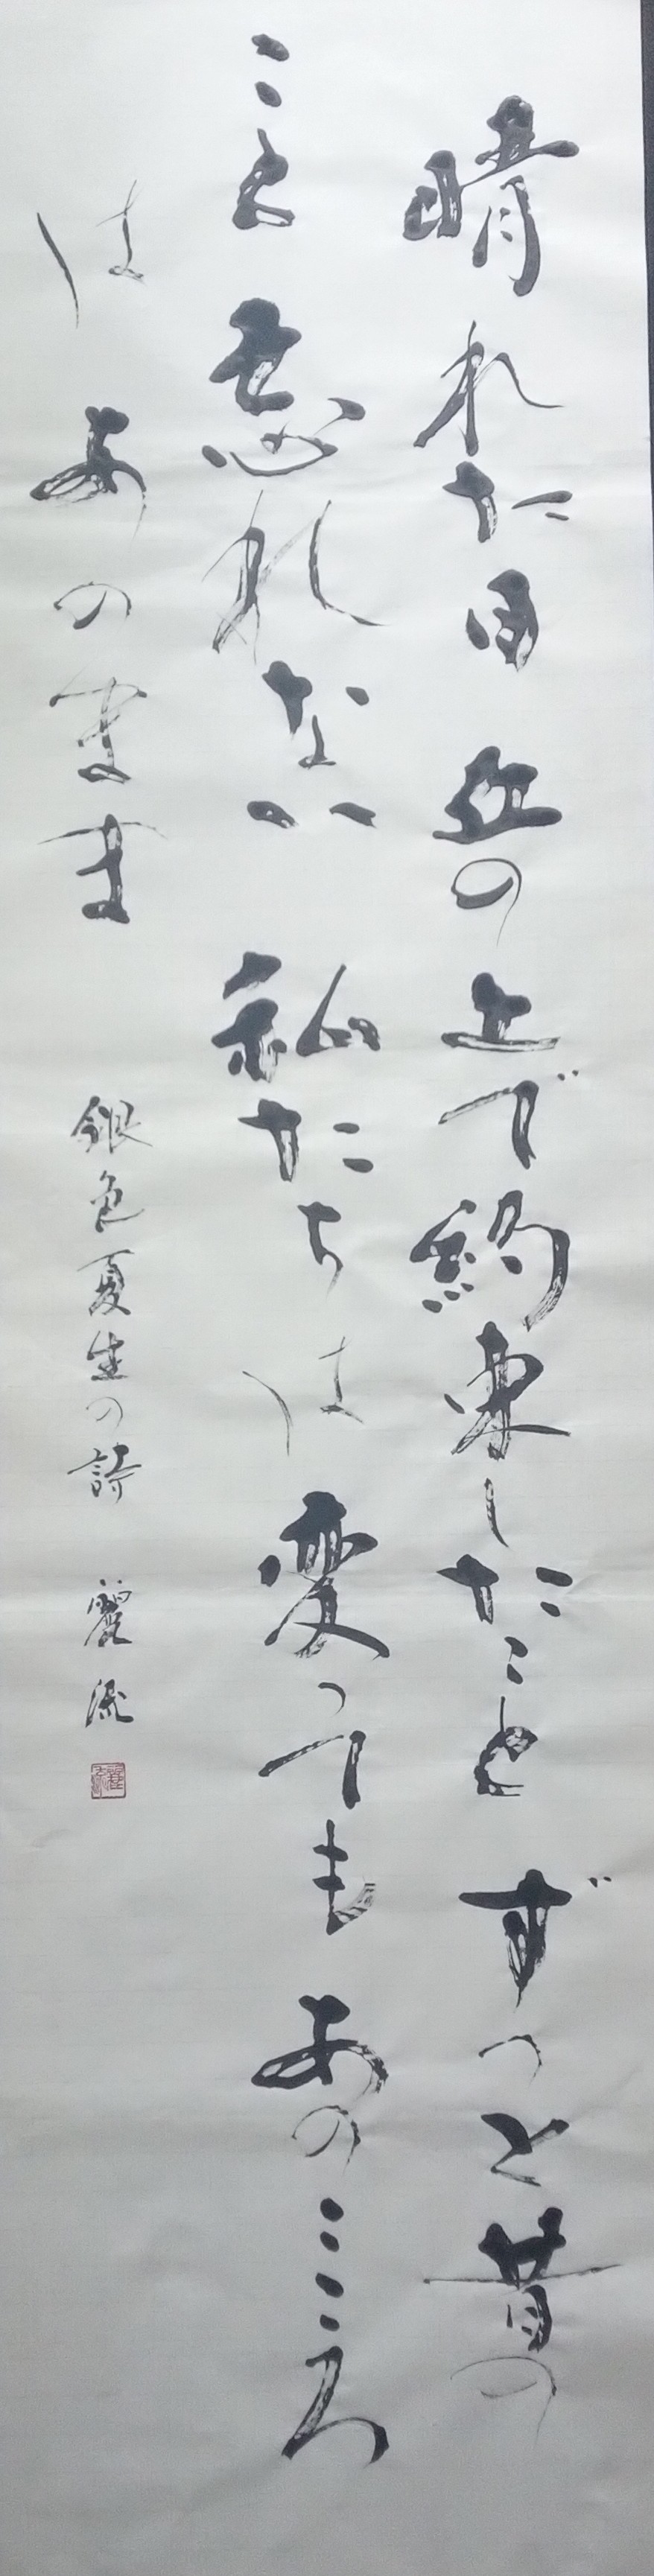 晴れた日 丘の上で約束したこと ずっと昔の
こと 忘れない 私たちは変っても あのこころ
は あのまま
銀色夏生の詩 麗流